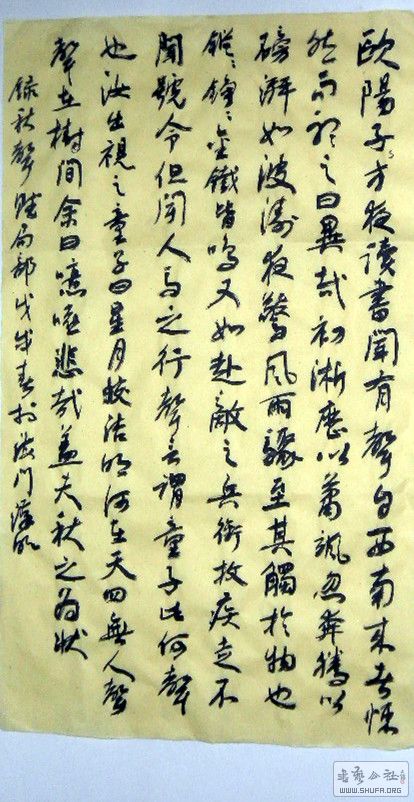 歐陽子方夜讀書聞有聲自西南来者悚
然而聽之曰異哉初淅瀝以蕭颯忽奔騰以
磅湃如波濤夜驚風雨驟至其觸於物也
鏦〻錚〻金鐵皆鳴又如赴敵之兵銜枚疾走不
聞號令但聞人馬之行聲予謂童子此何聲
也汝出視之童子曰星月皎洁明河在天四無人聲
聲在樹間余曰噫嘻悲哉蓋夫秋之為狀
錄秋聲賦局部戊戌春於法門
WWW.SHUFA.ORG